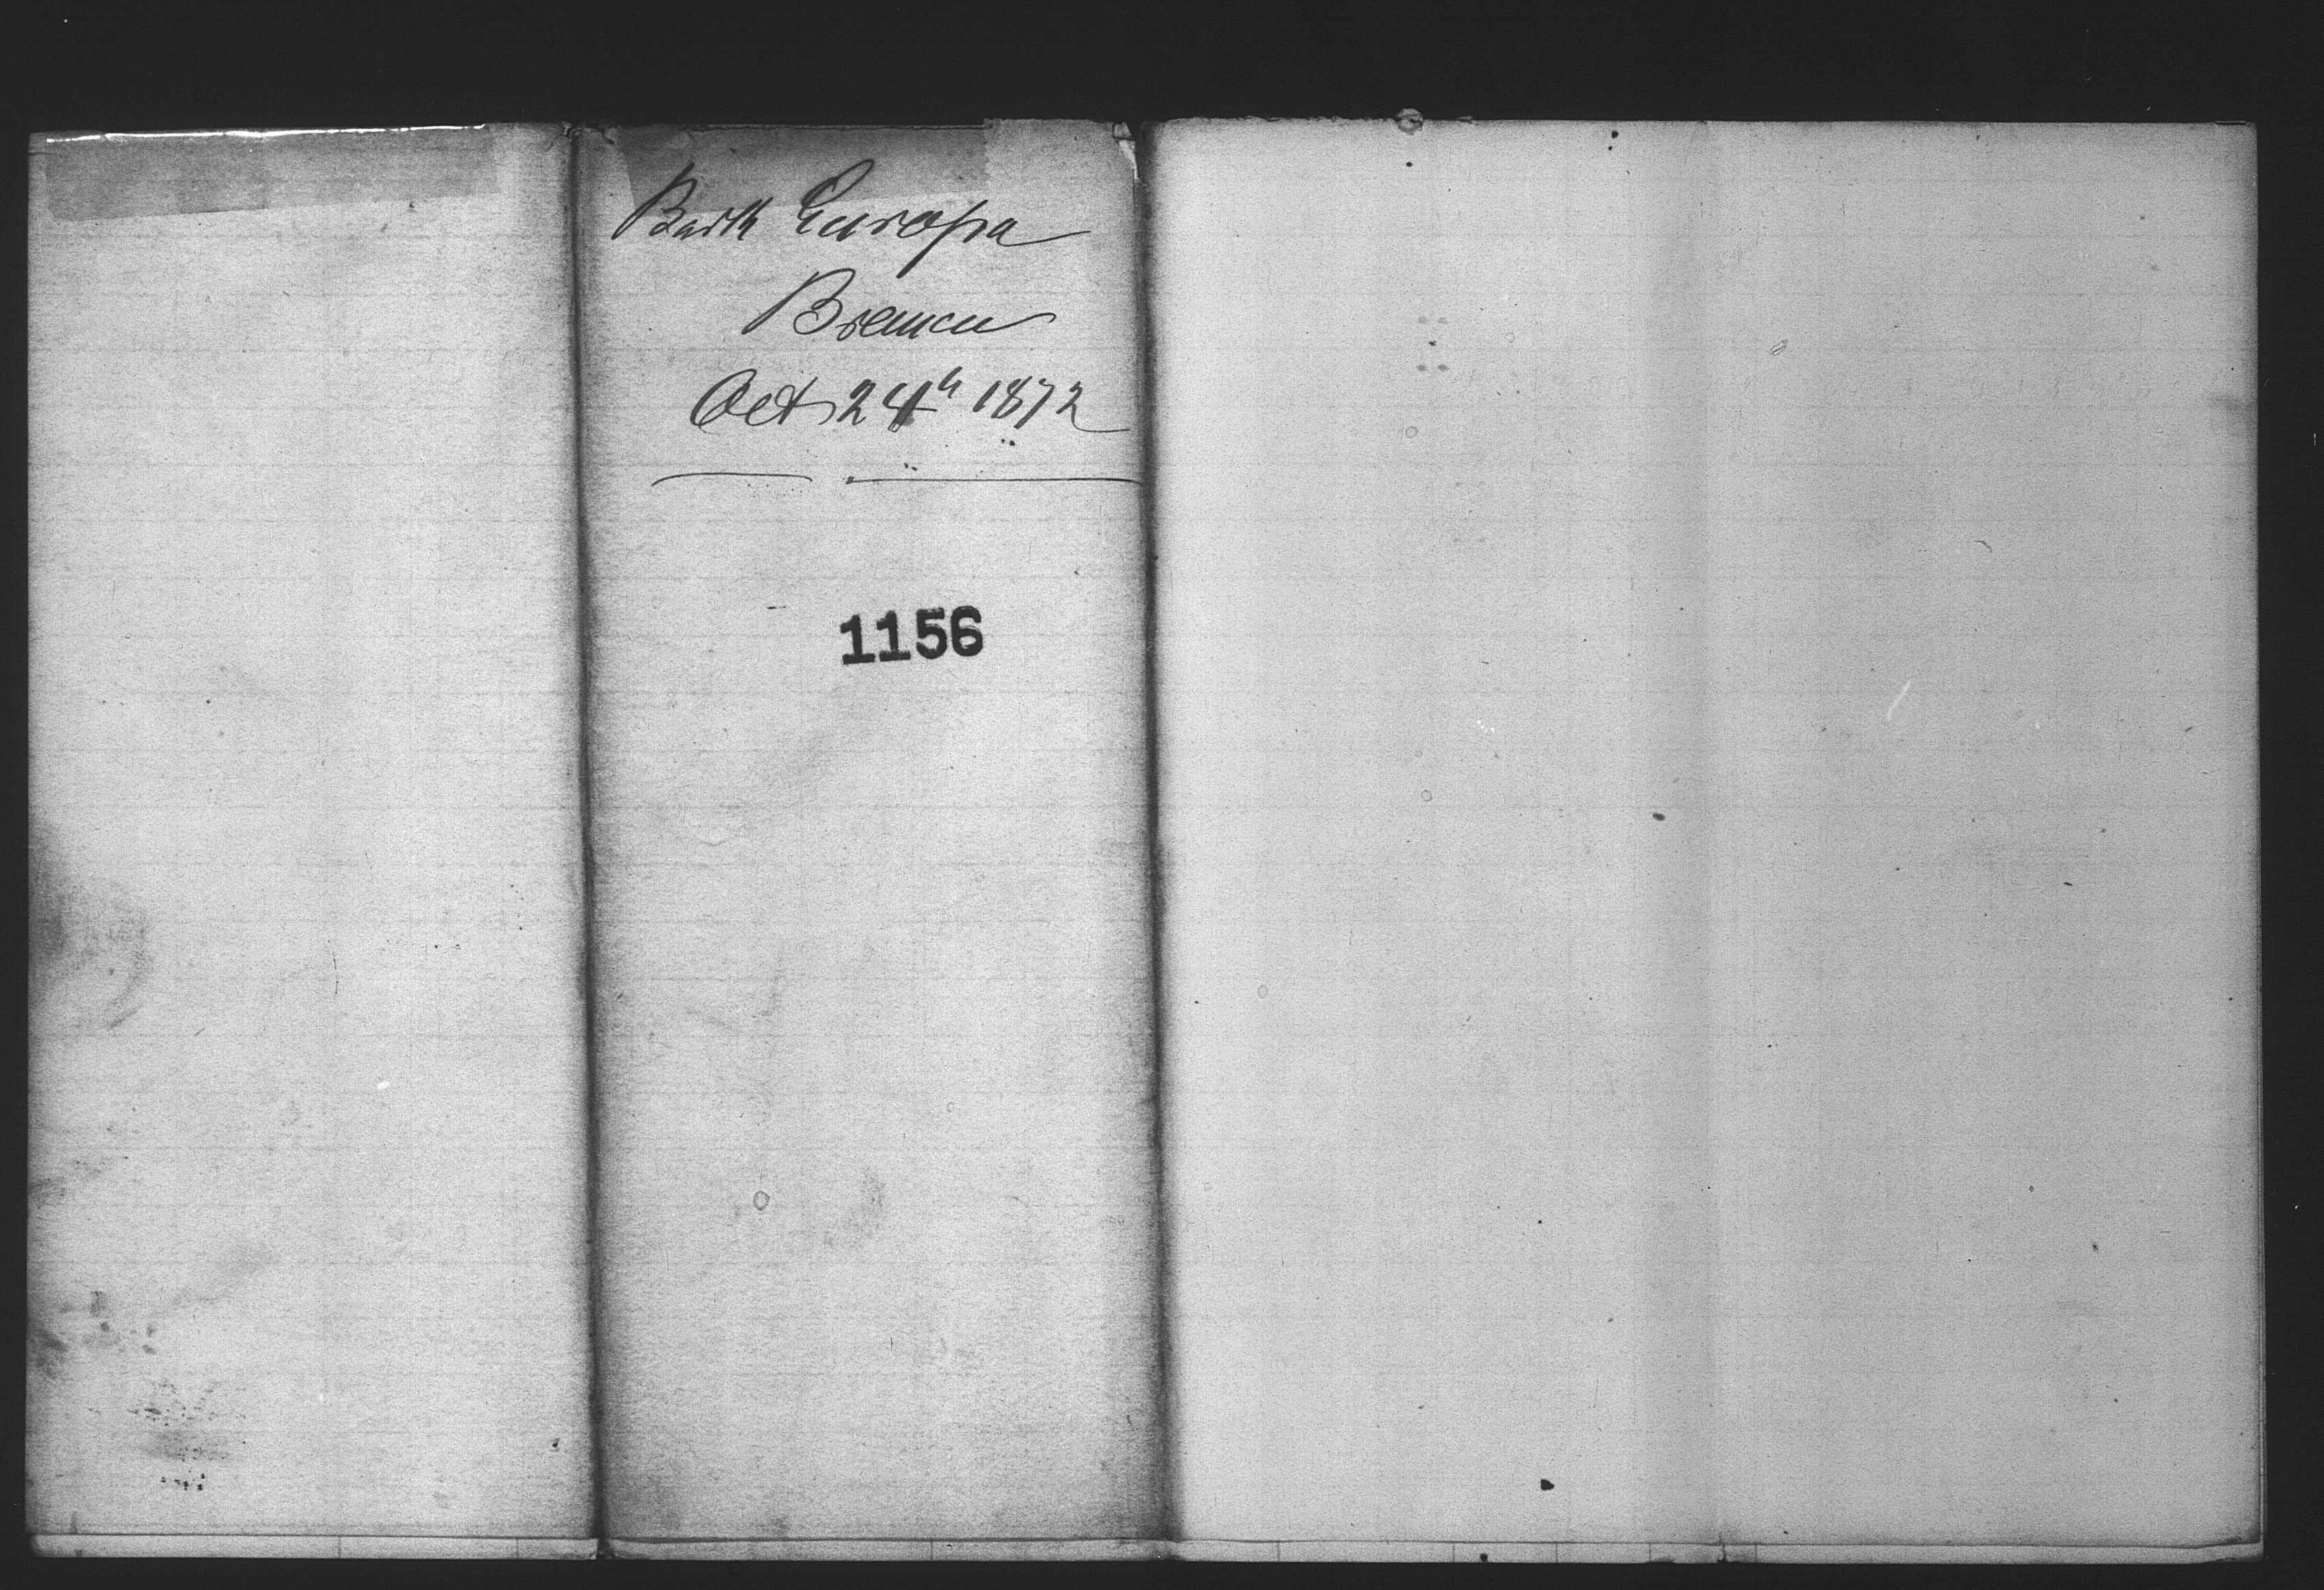 Bark Europa
Bremen
Oct 24th 1872
1156